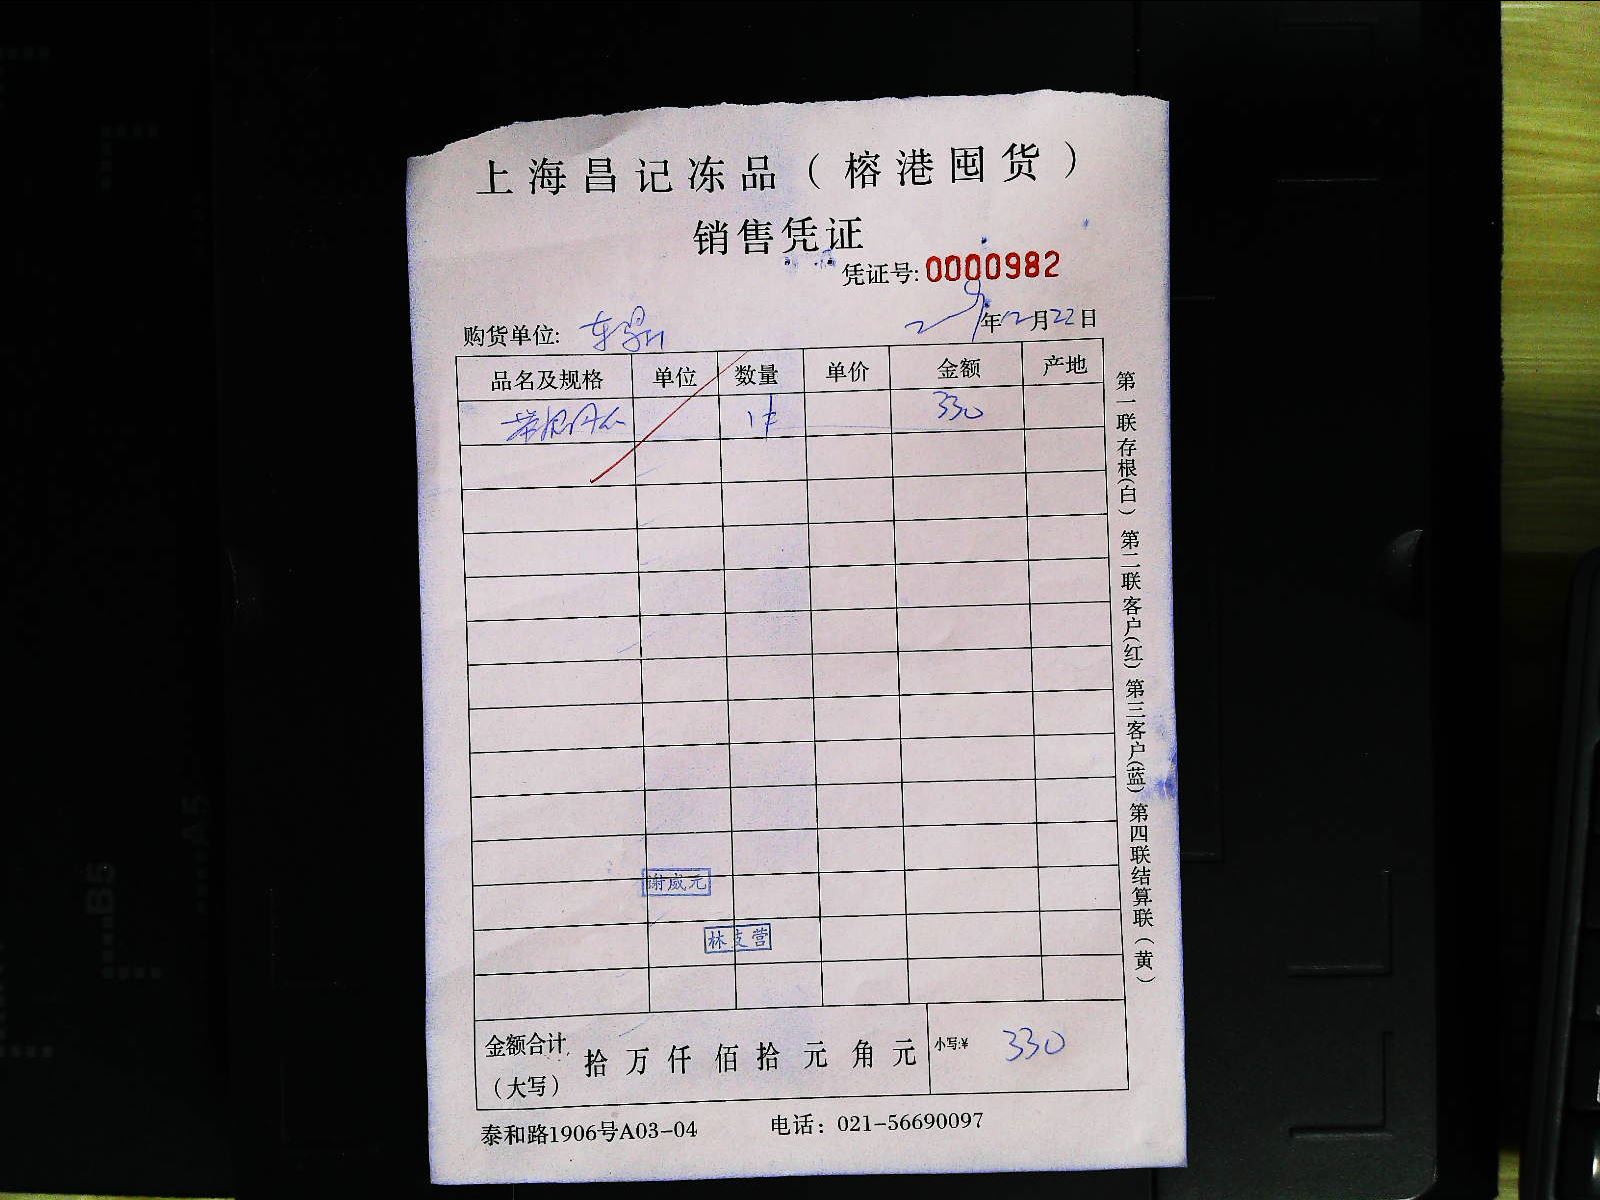 上海昌记冻品（榕港囤货）
销售凭证
凭证号:0000982
购货单位: 年12月22日
品名及规格 单位 数量 单价 金额 产地
1件 330
谢威元
林支营
金额合计（大写） 拾万仟佰拾元角元 小写:¥ 330
泰和路1906号A03-04 电话：021-56690097
第一联存根(白) 第二联客户(红) 第三客户(蓝) 第四联结算联（黄）
B5
A5